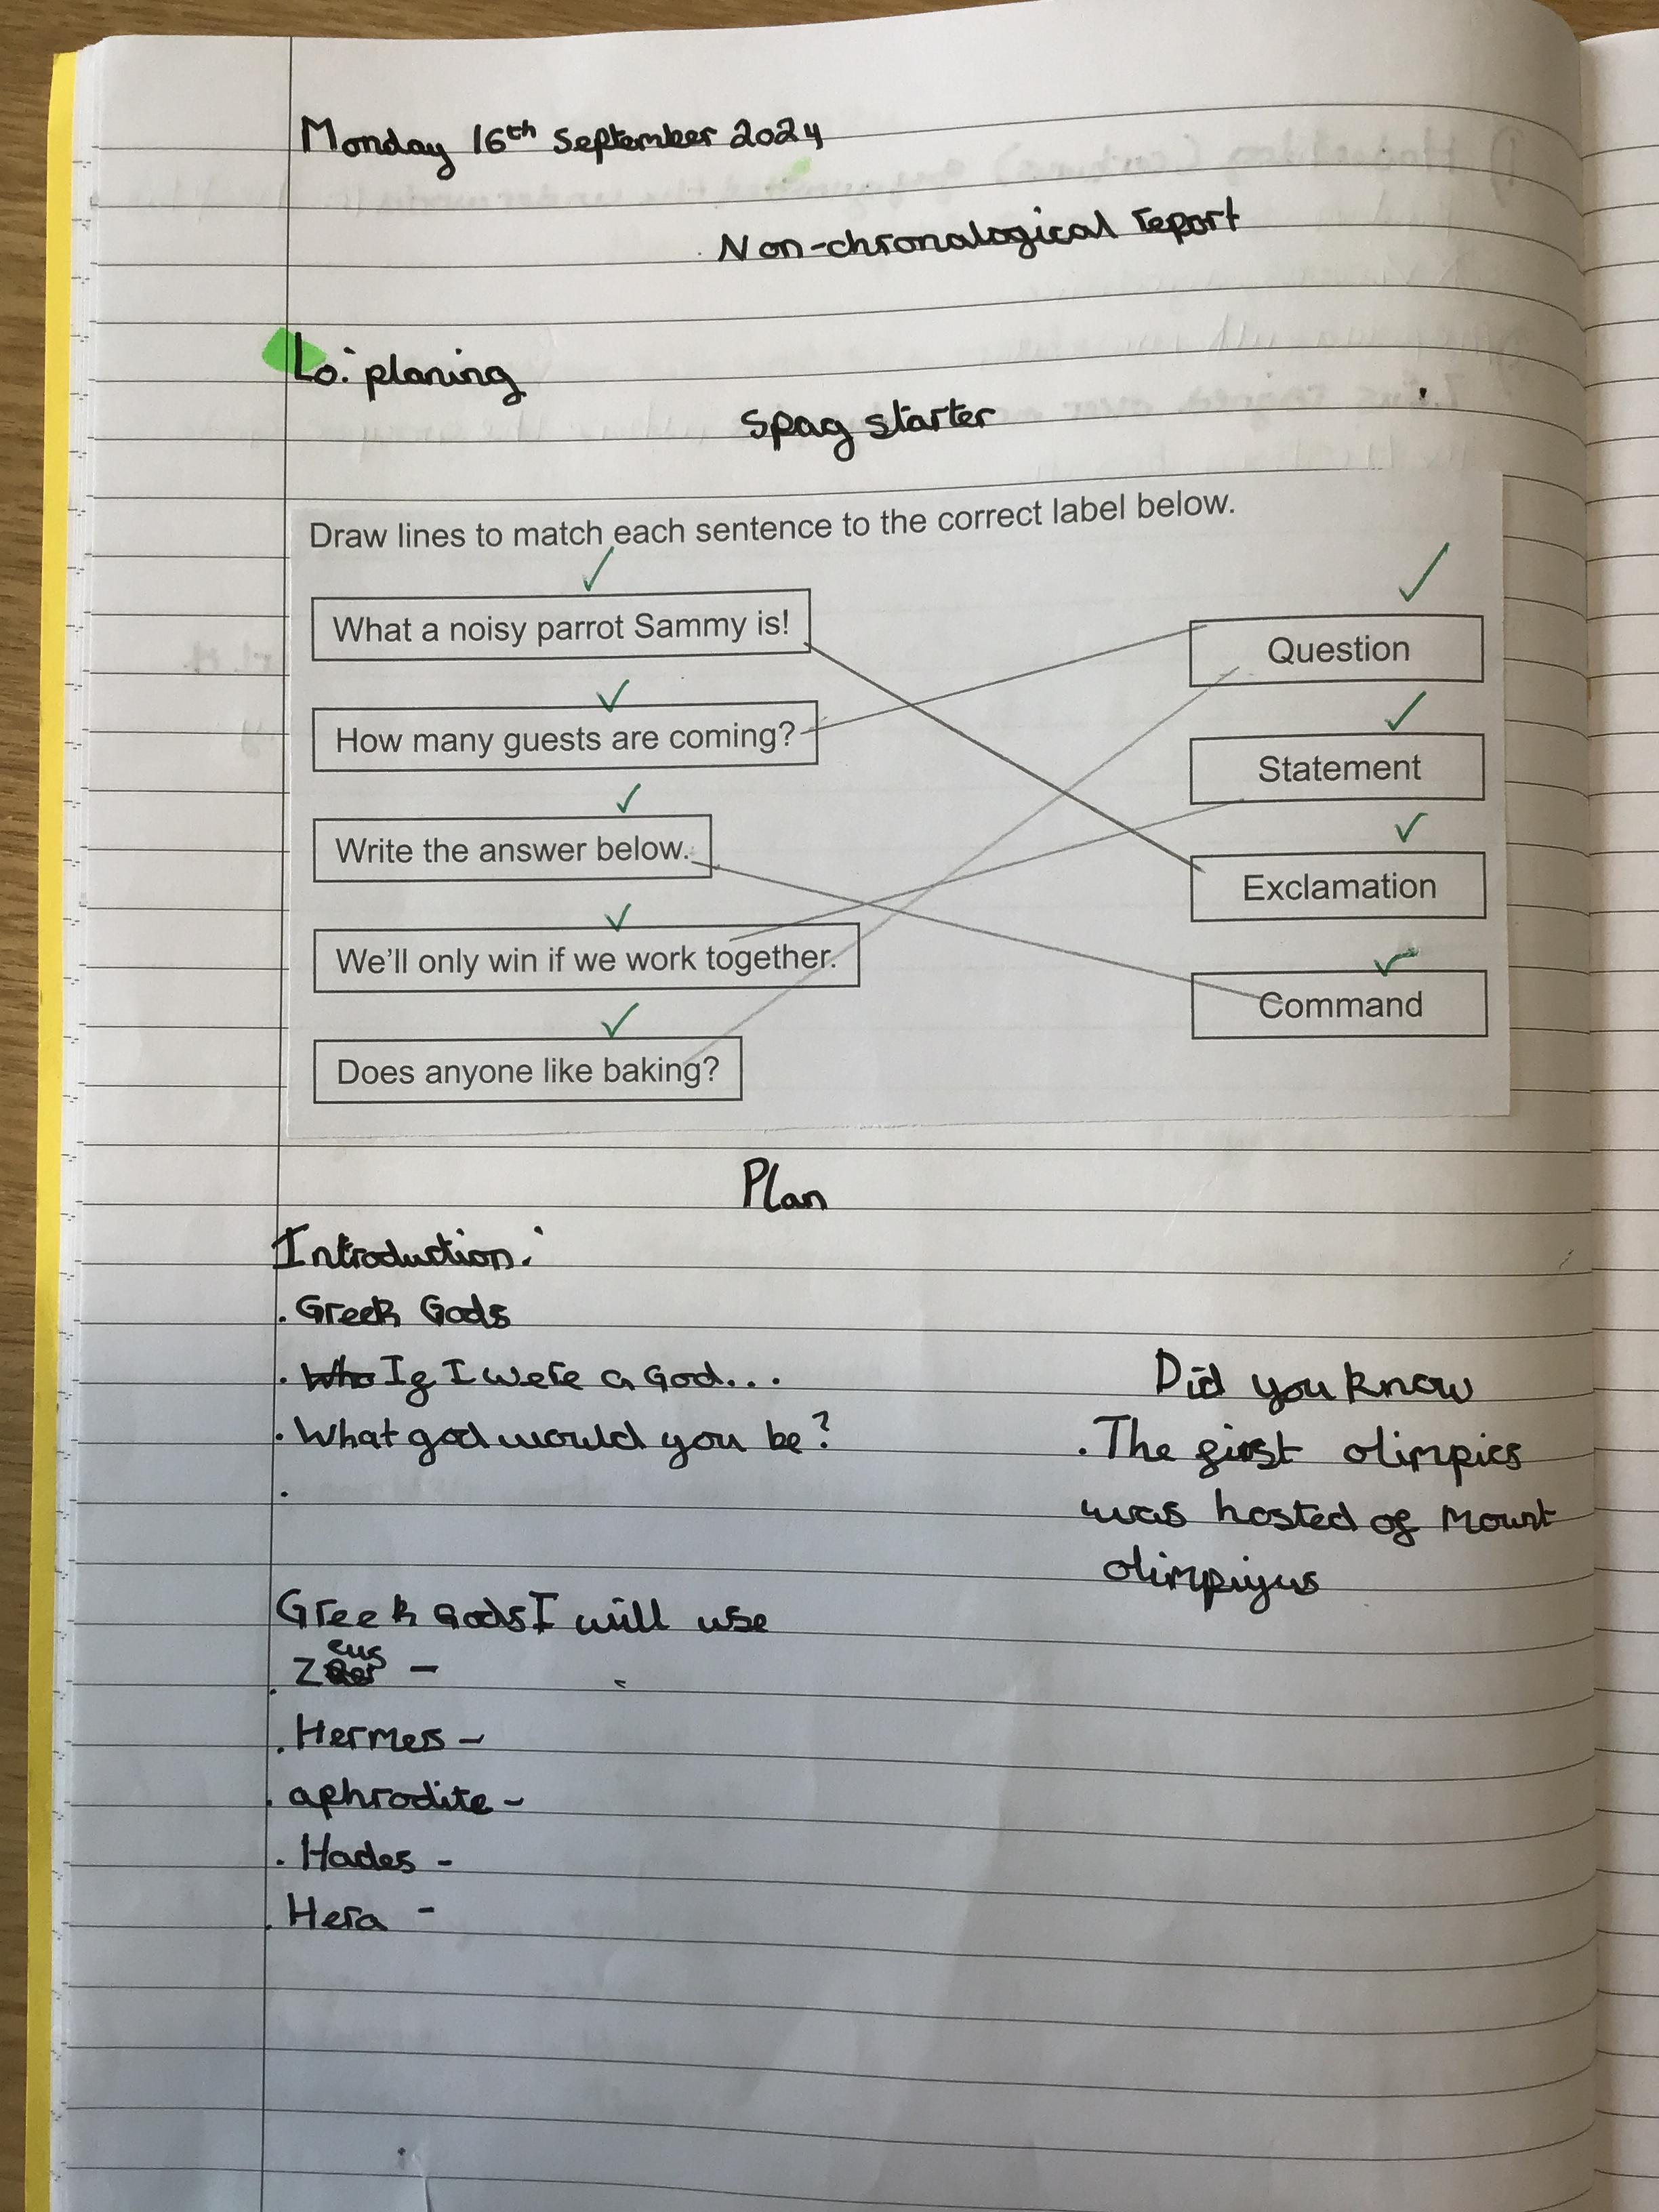 Monday 16th September 2024
Non-chronalogical report
Lo: planing
Spag starter
Draw lines to match each sentence to the correct label below.
What a noisy parrot Sammy is!
Question
How many guests are coming?
Statement
Write the answer below.
Exclamation
We'll only win if we work together.
Command
Does anyone like baking?
Plan
Introduction:
. Greek Gods
. Who If I were a God...
. What god would you be?
.
Did you know
. The first olimpics
was hosted of Mount
olimpiyus
Greek Gods I will use
. Zeus -
. Hermes -
. aphrodite -
. Hades -
. Hera -